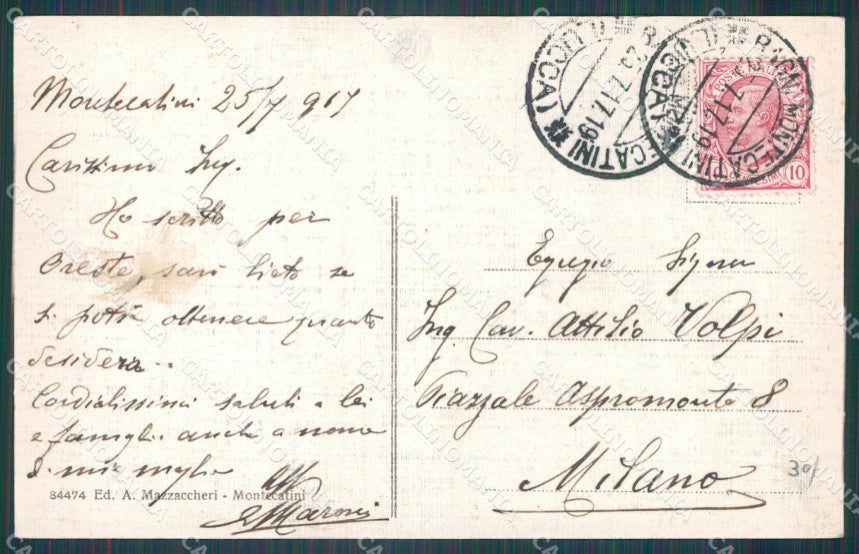 Montecatini 25/7 917
Carissimo Ing.
Ho scritto per
Oreste, sarò lieto se
si potrà ottenere quanto
desidera..
Cordialissimi saluti a lei
e famiglia anche a nome
di mia moglie
84474 Ed. A. Mazzaccheri - Montecatini
Maroni
BAGNI MONTECATINI (LUCCA)
25.7.17.19
POSTE
10
Egregio Signor
Ing. Cav. Attilio Volpi
Piazzale Aspromonte 8
Milano
30/
CARTOLINOMANIA